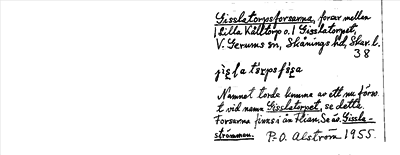 Gissletorpsforsarna, forsar mellan
Lilla Källtorp o. Gissletorpet,
V. Gerums sn, Skånings hd, Skar. l.
38
Namnet torde komma av ett nu försv.
t vid namn Gissletorpet, se detta.
Forsarna finns i ån Flian. Se äv. Gissle-
strömmen. P-O. Alström 1955.